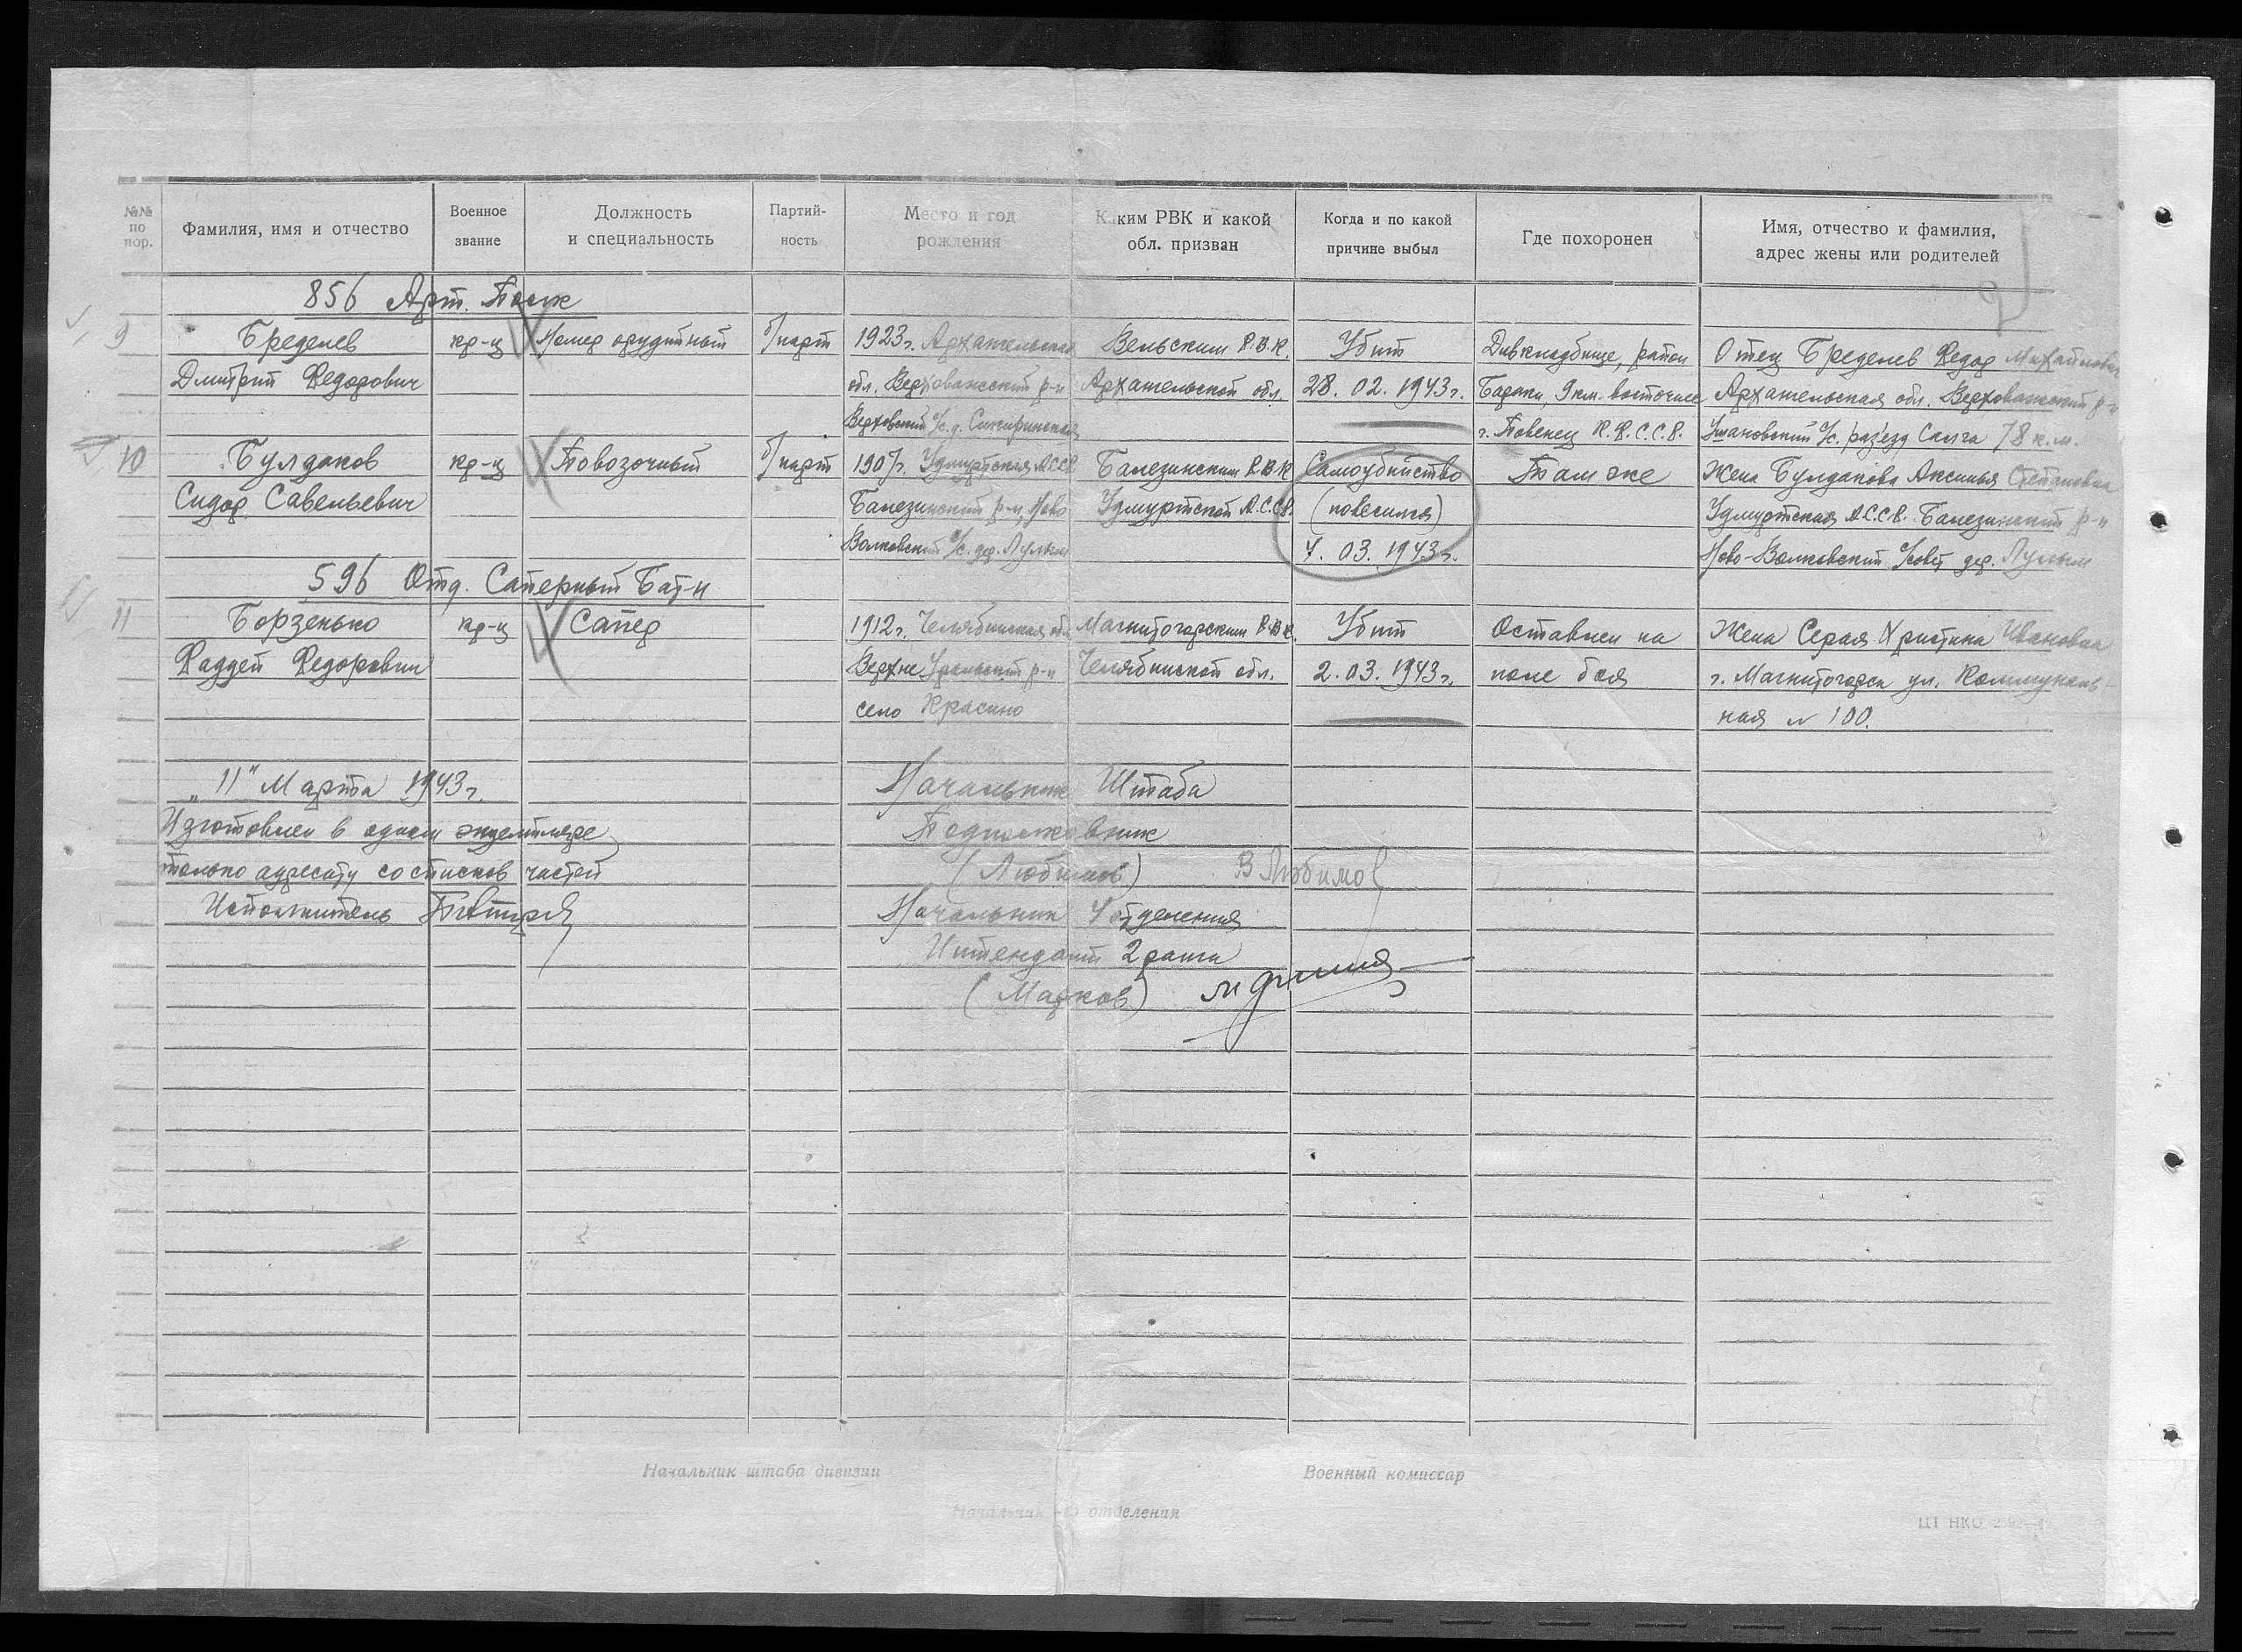 №№ по пор.
Фамилия, имя и отчество
Военное звание
Должность и специальность
Партий-ность
Место и год рождения
Каким РВК и какой обл. призван
Когда и по какой причине выбыл
Где похоронен
Имя, отчество и фамилия, адрес жены или родителей
856 Арт. Полк
9 Бределев кр-ц Номер орудийный б/парт 1923г. Архангельская Вельским Р.В.К. Убит Дивкладбище, район Отец Бределев Федор Михайлович
Дмитрий Федорович обл. Верховажский р-н Архангельской обл. 28.02.1943г. Бараки, 9 км. восточнее Архангельская обл. Верховажский р-н
Верховский с/с. д. г. Повенец К.Ф.С.С.Р. с/с. раз'езд 78 к.м.
10 Булдаков кр-ц Повозочный б/парт 1907г. Удмуртская АССР Балезинским Р.В.К Самоубийство Там же Жена Булдакова Аксинья Степановна
Сидор Савельевич Балезинский р-н, Ново Удмуртской А.С.С.Р. (повесился) Удмуртская А.С.С.Р. Балезинский р-н
Волковский с/с. дер. 4.03.1943г. Ново-Волковский с/совет дер.
596 Отд. Саперный Бат-н
11 Борзенько кр-ц Сапер 1912г. Челябинская обл Магнитогорским Р.В.К. Убит Оставлен на Жена Серая Христина Ивановна
Фаддей Федорович Верхне Уральский р-н Челябинской обл. 2.03.1943г. поле боя г. Магнитогорск ул. Коммуналь-
село Красино ная № 100.
„11" Марта 1943г. Начальник Штаба
Изготовлен в одном экземпляре Подполковник
только адресату со списков частей (Любимов) В Любимов
Исполнитель Начальник 4 отделения
Интендант 2 ранга
(Марков)
Начальник штаба дивизии
Военный комиссар
Начальник 4-го отделения